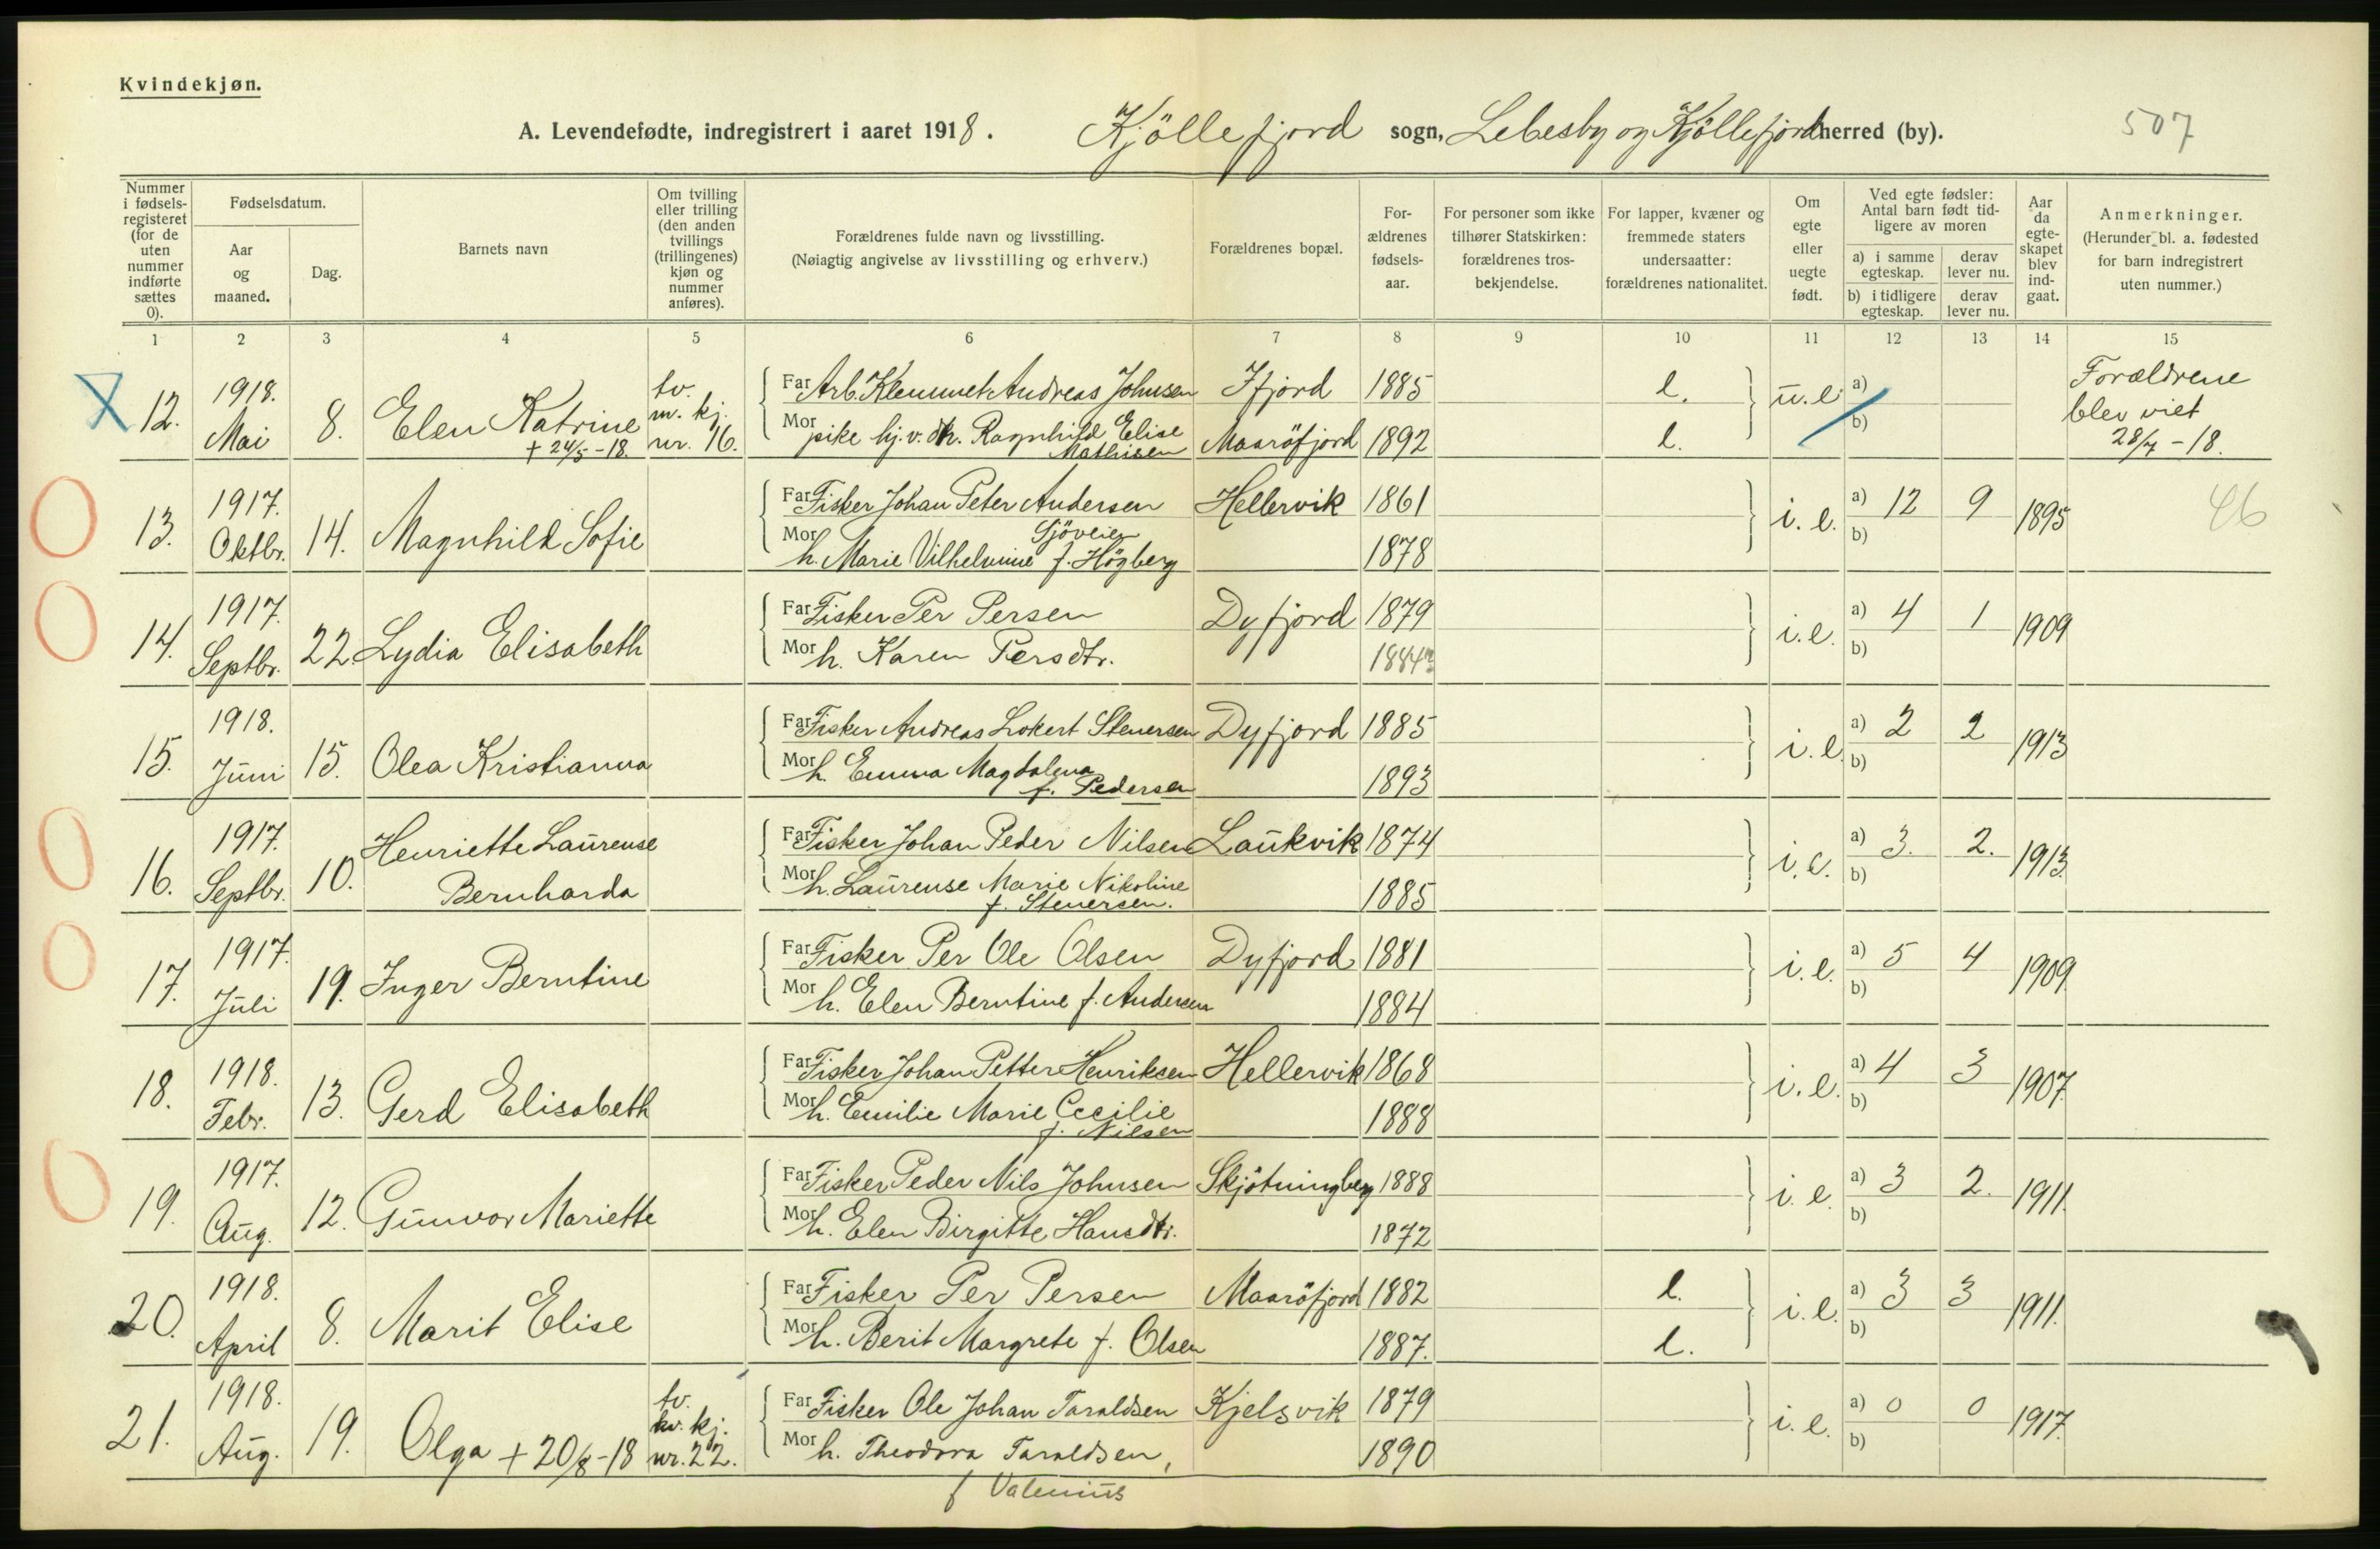 Kvindekjøn.
A. Levendefødte, indregistrert i aaret 1918. Kjöllefjord sogn, Lebesby og Kjöllefjord herred (by). 507
Nummer i fødsels-registeret (for de uten nummer indførte sættes 0).
Fødselsdatum.
Aar og maaned.
Dag.
Barnets navn
Om tvilling eller trilling (den anden tvillings (trillingenes) kjøn og nummer anføres).
Forældrenes fulde navn og livsstilling.
(Nøiagtig angivelse av livsstilling og erhverv.)
Forældrenes bopæl.
For-ældrenes fødsels-aar.
For personer som ikke tilhører Statskirken: forældrenes tros-bekjendelse.
For lapper, kvæner og fremmede staters undersaatter: forældrenes nationalitet.
Om egte eller uegte født.
Ved egte fødsler: Antal barn født tid-ligere av moren
a) i samme egteskap. derav lever nu.
b) i tidligere egteskap. derav lever nu.
Aar da egte-skapet blev ind-gaat.
Anmerkninger.
(Herunder bl. a. fødested for barn indregistrert uten nummer.)
1 2 3 4 5 6 7 8 9 10 11 12 13 14 15
12. 1918. Mai 8. Elen Katrine + 24/5-18. tv. m. kj. nr. 16.
Far Arb. Klemmet Andreas Johnsen Ifjord 1885 l. u.e. a)
Mor pike hj.v. Ragnhild Elise Mathisen Maaröfjord 1892 l. b)
Forældrene blev viet 28/7-18.
13. 1917. Oktbr. 14. Magnhild Sofie
Far Fisker Johan Peter Andersen Gjöveien Hellervik 1861 i.e. a) 12 9 1895 46
Mor h. Marie Vilhelmine f. Högberg 1878 b)
14. 1917. Septbr. 22. Lydia Elisabeth
Far Fisker Per Persen Dyfjord 1879 i.e. a) 4 1 1909
Mor h. Karen Persdtr. 1884 b)
15. 1918. Juni 15. Olea Kristianna
Far Fisker Andreas Lokert Stenersen Dyfjord 1885 i.e. a) 2 2 1913
Mor h. Emma Magdalena f. Pedersen 1893 b)
16. 1917. Septbr. 10. Henriette Laurense Bernharda
Far Fisker Johan Peder Nilsen Laukvik 1874 i.e. a) 3. 2. 1913.
Mor h. Laurense Marie Nikoline f. Stenersen. 1885 b)
17. 1917. Juli 19. Inger Berntine
Far Fisker Per Ole Olsen Dyfjord 1881 i.e. a) 5 4 1909.
Mor h. Elen Berntine f. Andersen 1884 b)
18. 1918. Febr. 13. Gerd Elisabeth
Far Fisker Johan Petter Henriksen Hellervik 1868 i.e. a) 4 3 1907.
Mor h. Emilie Marie Cecilie f. Nilsen 1888 b)
19. 1917. Aug. 12. Gunvor Mariette
Far Fisker Peder Nils Johnsen Skjötningberg 1888 i.e. a) 3 2. 1911.
Mor h. Elen Birgitte Hansdtr. 1872 b)
20. 1918. April 8. Marit Elise
Far Fisker Per Persen Maaröfjord 1882 l. i.e. a) 3 3 1911.
Mor h. Berit Margrete f. Olsen 1887. l. b)
21. 1918. Aug. 19. Olga + 20/8-18 tv. kv. kj. nr. 22.
Far Fisker Ole Johan Taraldsen Kjelsvik 1879 i.e. a) 0 0 1917.
Mor h. Theodora Taraldsen, 1890 b)
f Valenius